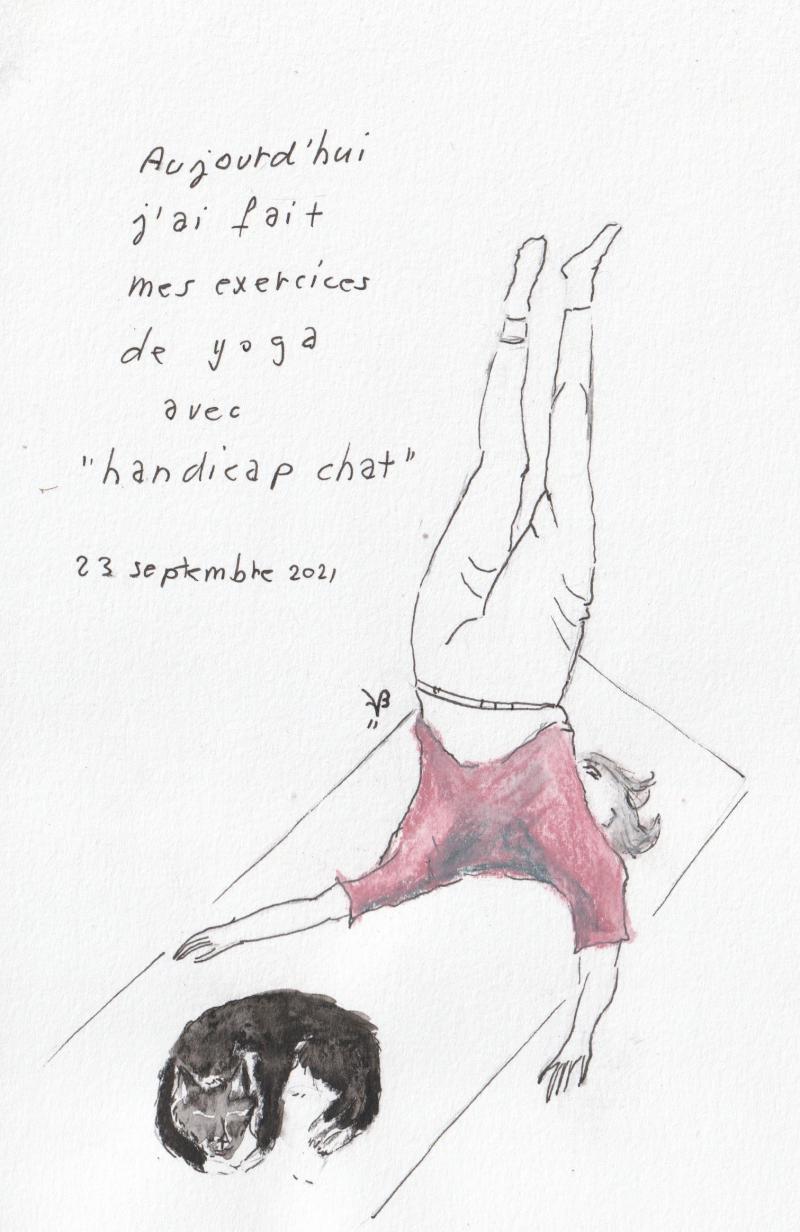 Aujourd'hui
j'ai fait
mes exercices
de yoga
avec
"handicap chat"
23 septembre 2021